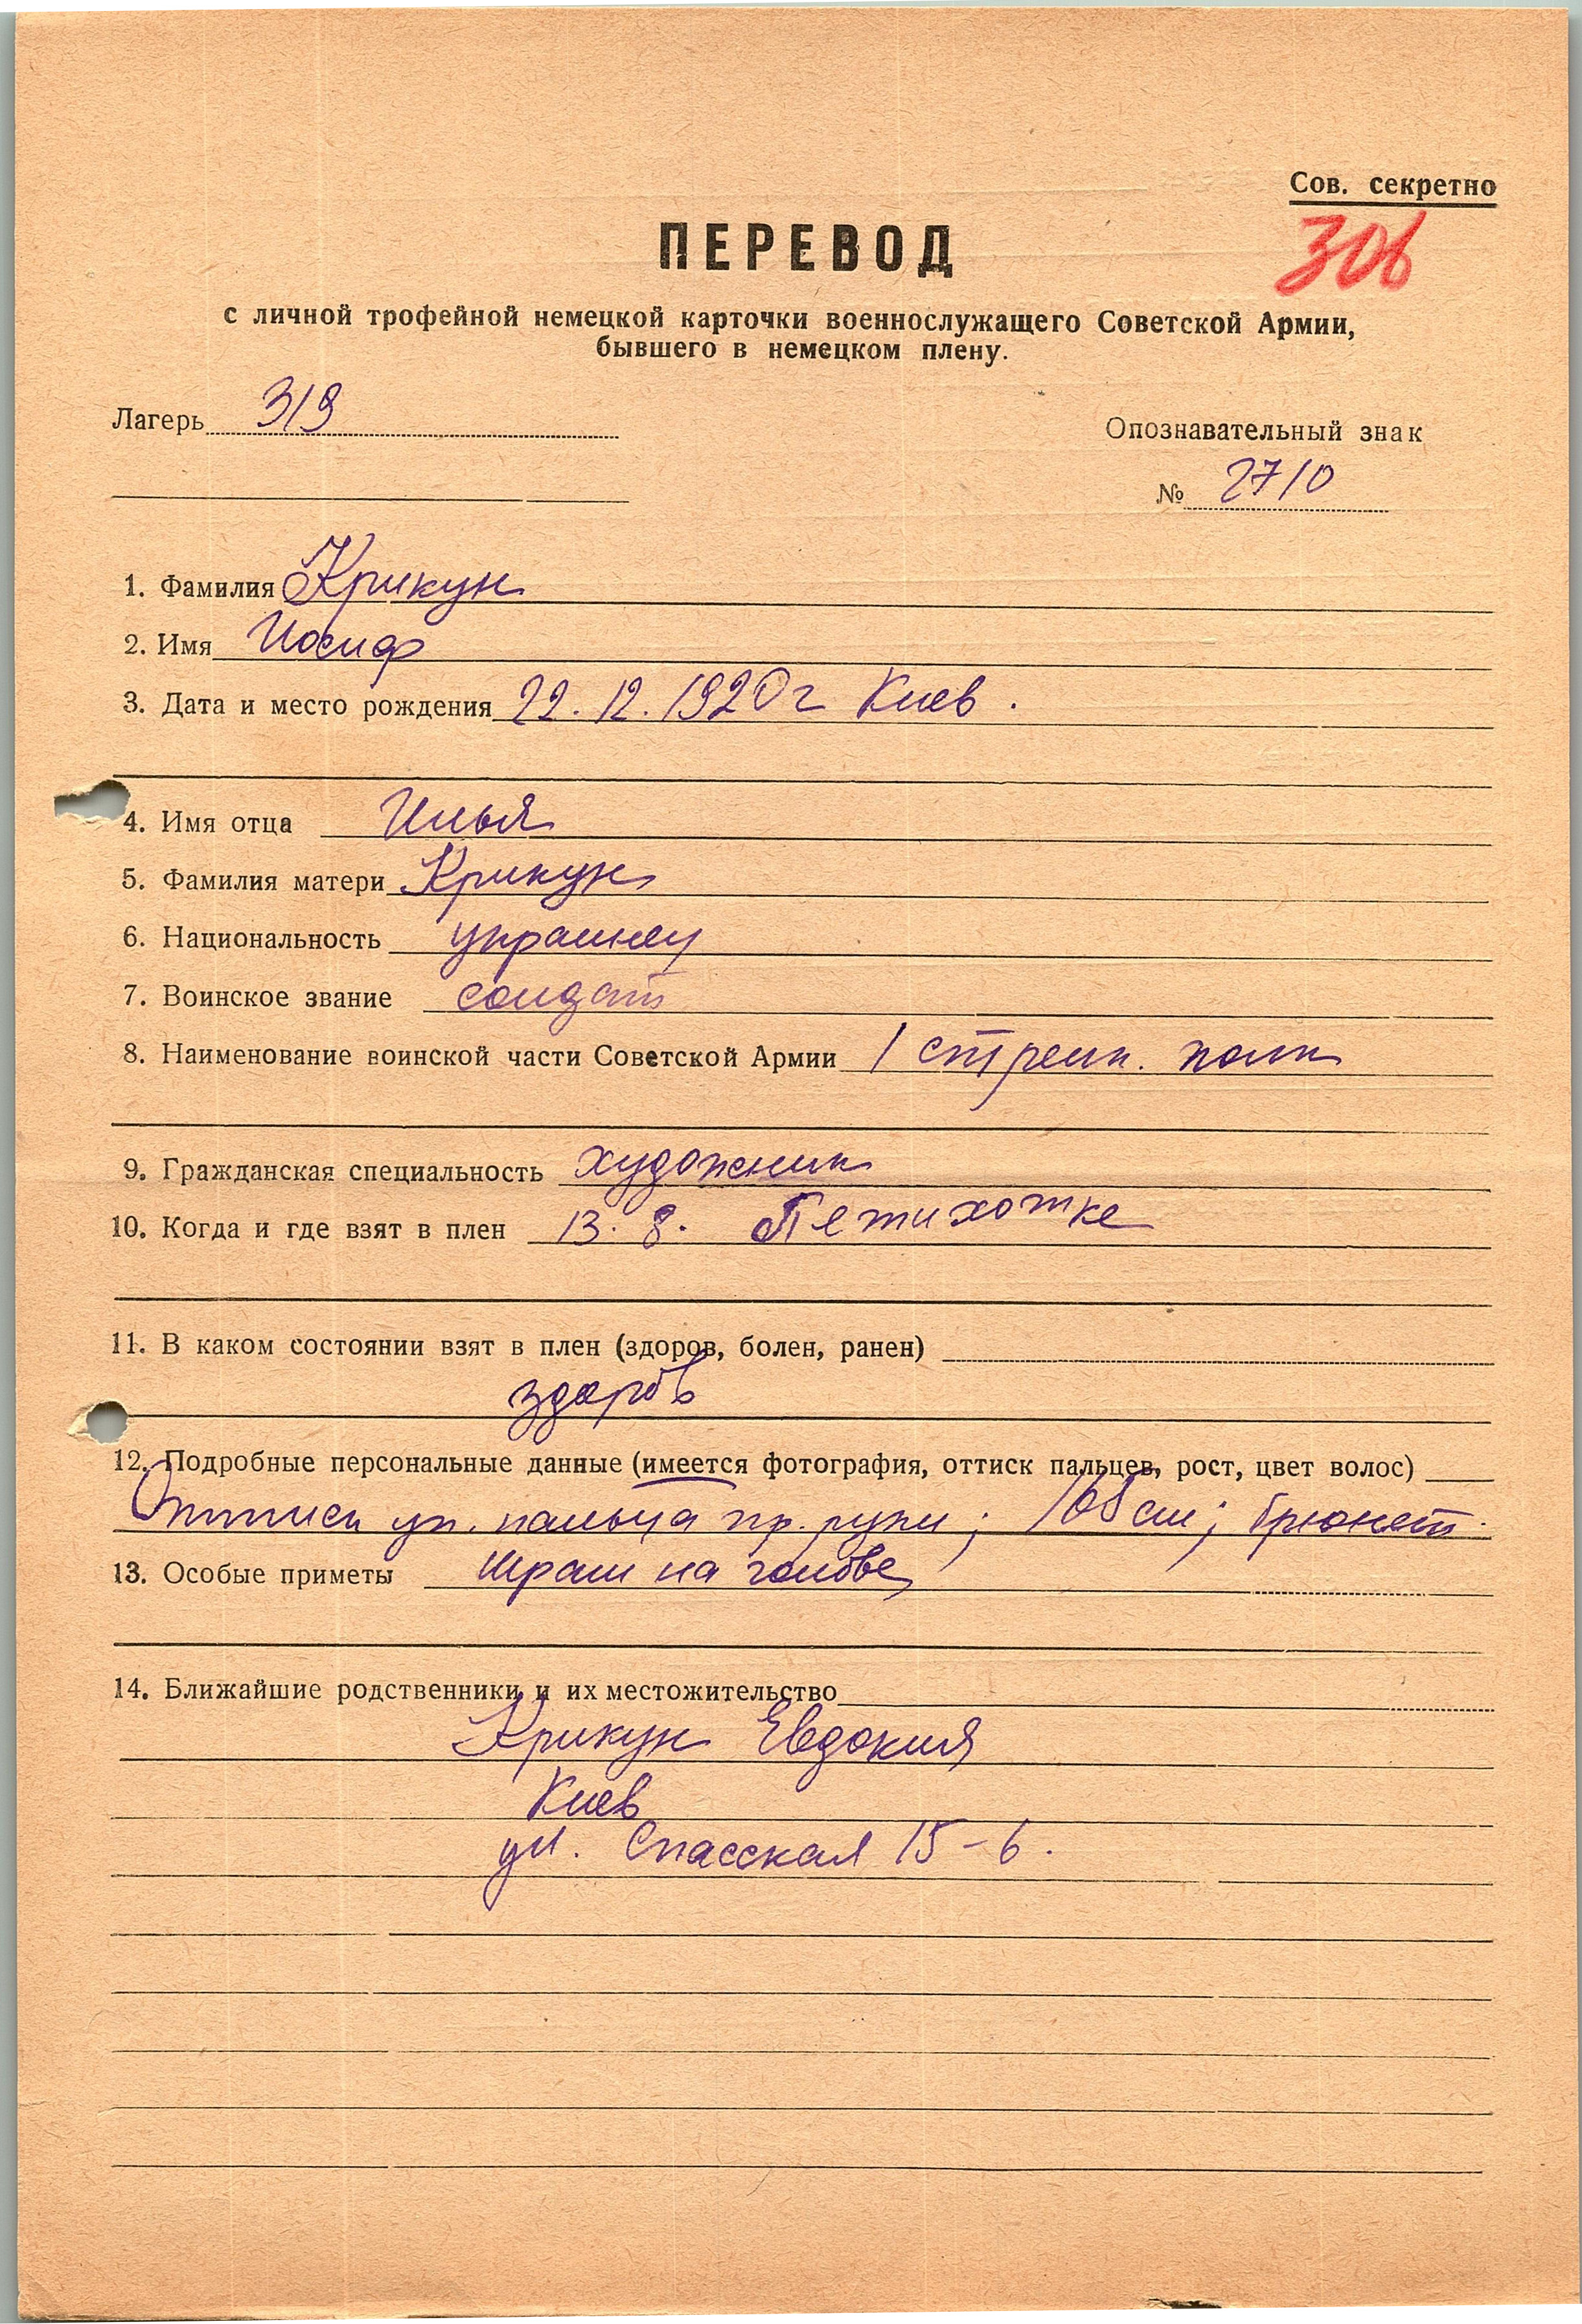 Сов. секретно
306
ПЕРЕВОД
с личной трофейной немецкой карточки военнослужащего Советской Армии,
бывшего в немецком плену.
Лагерь 319
Опознавательный знак
№ 2710
1. Фамилия Крикун
2. Имя Иосиф
3. Дата и место рождения 22.12.1920 г Киев.
4. Имя отца Илья
5. Фамилия матери Крикун
6. Национальность украинец
7. Воинское звание солдат
8. Наименование воинской части Советской Армии 1 стрелк. полк
9. Гражданская специальность художник
10. Когда и где взят в плен 13.8. Пятихотке
11. В каком состоянии взят в плен (здоров, болен, ранен)
здоров
12. Подробные персональные данные (имеется фотография, оттиск пальцев, рост, цвет волос)
Оттиск ук. пальца пр. руки; 168 см; брюнет.
13. Особые приметы шрам на голове
14. Ближайшие родственники и их местожительство
Крикун Евдокия
Киев
ул. Спасская 15-6.